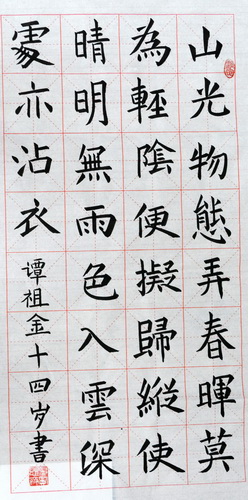 山光物態弄春暉莫
為輕陰便擬歸縱使
晴明無雨色入雲深
處亦沾衣
谭祖金十四岁書